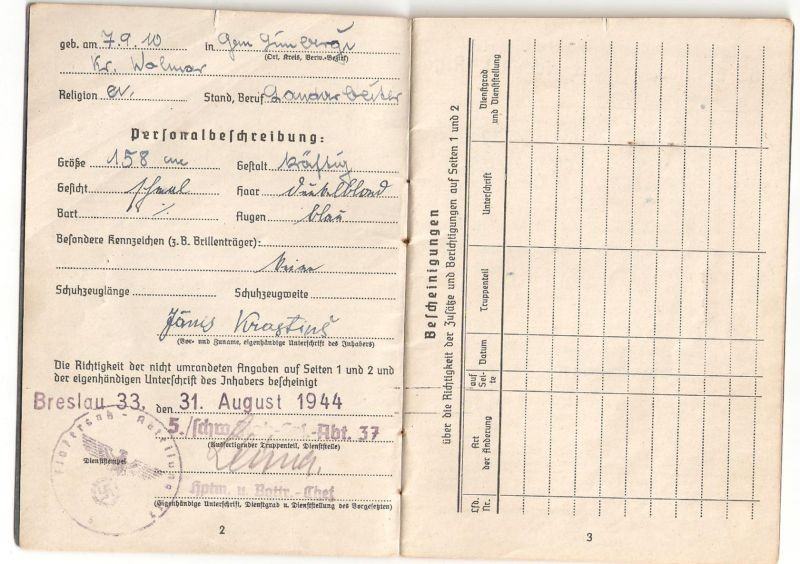 geb. am 7.9.10 in Gem
(Ort, Kreis, Verw.-Bezirk)
Kr. Wolmar
Religion ev. Stand, Beruf Landarbeiter
Personalbeschreibung:
Größe 158 cm Gestalt kräftig
Gesicht schmal Haar dunkelblond
Bart % Augen blau
Besondere Kennzeichen (z. B. Brillenträger):
keine
Schuhzeuglänge Schuhzeugweite
Jānis Krastiņš
(Vor- und Zuname, eigenhändige Unterschrift des Inhabers)
Die Richtigkeit der nicht umrandeten Angaben auf Seiten 1 und 2 und
der eigenhändigen Unterschrift des Inhabers bescheinigt
Breslau 33, den 31. August 1944
5./schw. -Abt. 37
(Ausfertigender Truppenteil, Dienststelle)
Dienststempel
Hptm. u. Battr.-Chef
(Eigenhändige Unterschrift, Dienstgrad u. Dienststellung des Vorgesetzten)
2
Bescheinigungen
über die Richtigkeit der Zusätze und Berichtigungen auf Seiten 1 und 2
Lfd. Nr.
Art der Änderung
auf Seite
Datum
Truppenteil
Unterschrift
Dienstgrad und Dienststellung
3